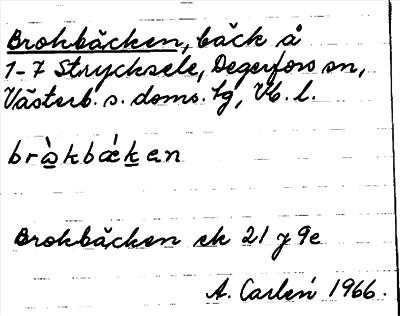 Brokbäcken, bäck å
1-7 Strycksele, Degerfors sn,
Västerb. s. doms. lg, Vb. l.
brὰkbǽken
Brokbäcken ek 21 J 9e
A. Carlén 1966.